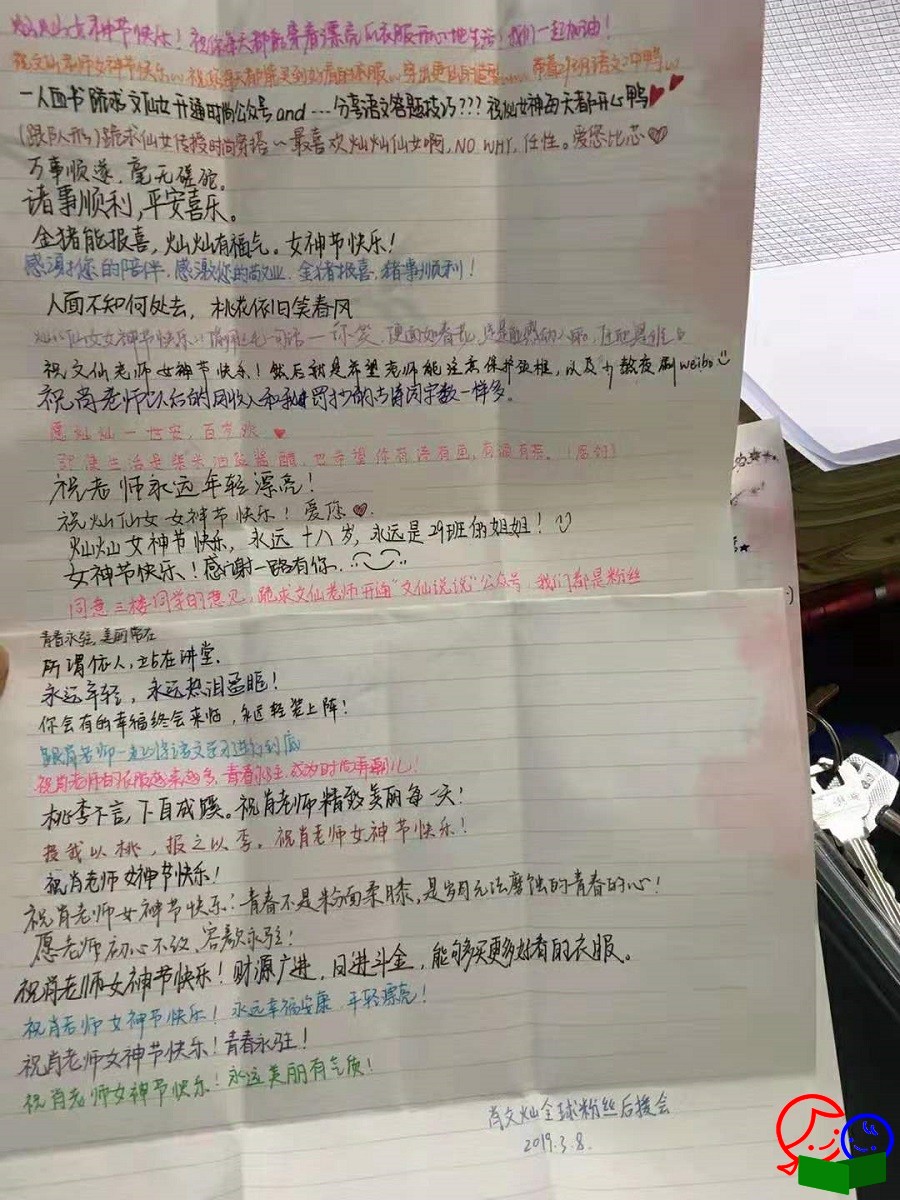 灿灿女神节快乐！祝你每天都能穿着漂亮的衣服开心地生活，我们一起加油！
祝文灿老师女神节快乐～祝您每天都能买到好看的衣服～ 带着29班语文冲鸭
一人血书跪求文仙女开通时尚公众号and……分享语文答题技巧？？？祝仙女神每天都开心鸭
(跟队形)跪求仙女传授时尚穿搭～最喜欢灿灿仙女啊，NO WHY，任性。爱您比芯
万事顺遂，毫无磋砣。
诸事顺利，平安喜乐。
金猪能报喜，灿灿有福气。女神节快乐！
感谢您的陪伴，感激您的敬业，金猪报喜，猪事顺利！
人面不知何处去，桃花依旧笑春风
灿仙仙女女神节快乐
祝文仙老师女神节快乐！然后就是希望老师能注意保护颈椎，以及少熬夜刷weibo
祝肖老师以后的月收入和我罚抄的古诗词字数一样多。
愿灿灿一世安，百岁欢
即使生活是柴米油盐酱醋，也希望你有诗有画，有酒有茶。
祝老师永远年轻漂亮！
祝灿仙女女神节快乐！爱您
灿灿女神节快乐，永远十八岁，永远是29班的姐姐！
女神节快乐！感谢一路有你。
同意三楼同学的意见，跪求文仙老师开通“文仙说说”公众号，我们都是粉丝
青春永驻，美丽常在
所谓依人，站在讲堂。
永远年轻，永远热泪盈眶！
你会有的幸福终会来临，永远轻装上阵！
跟肖老师一起将语文学习进行到底
祝肖老师的衣服越来越多，青春永驻，成为时尚弄潮儿！
桃李不言，下自成蹊。祝肖老师精致美丽每一天！
投我以桃，报之以李。祝肖老师女神节快乐！
祝肖老师女神节快乐！
祝肖老师女神节快乐：青春不是粉面柔膝，是岁月无法磨蚀的青春的心！
愿老师初心不改，容颜永驻！
祝肖老师女神节快乐！财源广进，日进斗金，能够买更多好看的衣服。
祝肖老师女神节快乐！永远幸福安康，年轻漂亮！
祝肖老师女神节快乐！青春永驻！
祝肖老师女神节快乐！永远美丽有气质！
肖文灿全球粉丝后援会
2019.3.8.